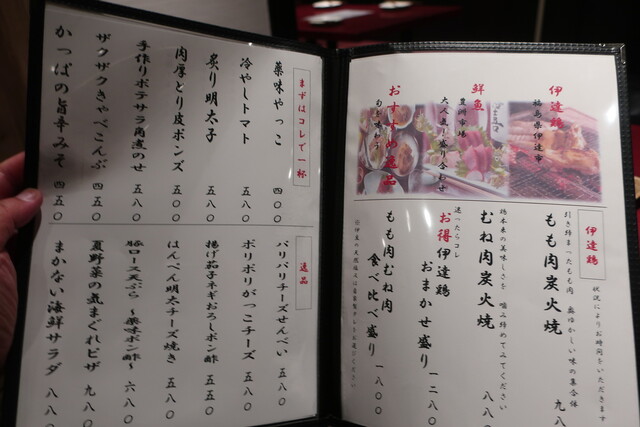 伊達鶏
福島県伊達市
鮮魚
豊洲市場
大人気!盛り合わせ
おすすめ逸品
伊達鶏
状況によりお時間をいただきます
引き締まったもも肉
もも肉炭火焼
九八
鶏本来の美味しさを 噛み締めてみてください
むね肉炭火焼
八八
迷ったらコレ
お得伊達鶏
おまかせ盛り
一二八〇
もも肉むね肉
食べ比べ盛り
一八〇〇
まずはコレで一杯
薬味やっこ
四〇〇
冷やしトマト
五八〇
炙り明太子
五八〇
肉厚とり皮ポンズ
五〇〇
手作りポテサラ角煮のせ
五八〇
ザクザクきゃべこんぶ
四五〇
かっぱの旨辛みそ
四五〇
逸品
バリバリチーズせんべい
五八〇
ポリポリがっこチーズ
五八〇
揚げ茄子ネギおろしポン酢
五五〇
はんぺん明太チーズ焼き
五八〇
豚ロース天ぷら 〜薬味ポン酢〜
六八〇
夏野菜の気まぐれピザ
九八〇
まかない海鮮サラダ
八八〇